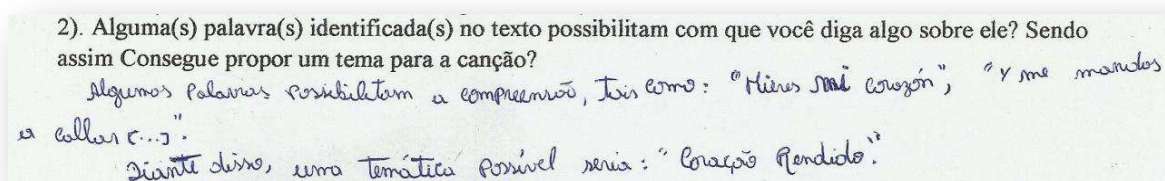 2). Alguma(s) palavra(s) identificada(s) no texto possibilitam com que você diga algo sobre ele? Sendo
assim Consegue propor um tema para a canção?
Algumas Palavras possibilitam a compreensão, tais como: "Hieres mi corazón", "Y me mandas
a callar [...]".
Diante disso, uma temática possível seria: "Coração Rendido."